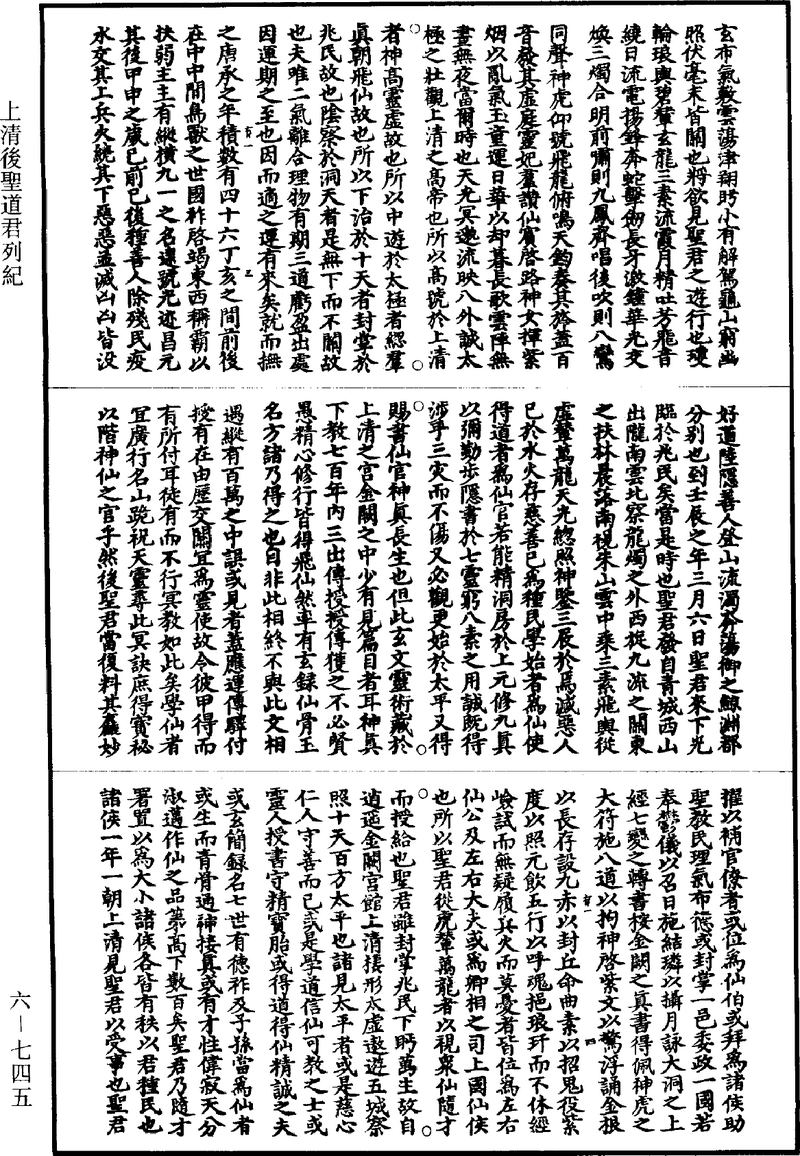 上清後聖道君列紀
六—七四五
玄布氣敷雲蕩津翔眄小有解駕龜山窮幽
照伏毫末皆關也將欲見聖君之遊行也瓊
輪琅輿碧輦玄龍三素流霞月精吐芳飛青
繞日流電揚鋒奔蛇擊劒長牙激鍾華光交
煥三燭合明前嘯則九鳳齊唱後吹則八鸞
同聲神虎仰號飛龍俯鳴天鈞奏其旂蓋百
音發其虛庭靈妃羣讚仙賓啓路神女揮紫
烟以亂氣玉童運日華以却暮長歌雲陣無
晝無夜當爾時也天光冥邈流映八外誠太
極之壯觀上清之高帝也所以高號於上清
者神高靈虛故也所以中遊於太極者總羣
眞朝飛仙故也所以下治於十天者封掌於
兆民故也陰察於洞天者是無下而不關故
也夫唯二氣離合理物有期三道虧盈出處
因運期之至也因而適之運有來矣就而撫
之唐承之年積數有四十六丁亥之間前後
在中中間鳥獸之世國祚啓竭東西稱霸以
扶弱主主有縱橫九一之名遠號光迹昌元
其後甲申之歲已前已後種善人除殘民疫
水交其上兵火繞其下惡惡並滅凶凶皆没
好道陸隱善人登山流濁奔蕩御之鯨淵都
分別也到壬辰之年三月六日聖君來下光
臨於兆民矣當是時也聖君發自青城西山
出隴南雲北察龍燭之外西旋九流之關東
之扶林晨落南視朱山雲中乘三素飛輿從
虛輦萬龍天光總照神鑒三辰於焉滅惡人
已於水火存慈善已爲種民學始者爲仙使
得道者爲仙官若能精洞房於上元修九眞
以彌勤步隱書於七靈窮八素之用誠既得
涉乎三灾而不傷又必觀更始於太平又得
賜書仙官神眞長生也但此玄文靈術藏於
上清之宫金闕之中少有見篇目者耳神眞
下教七百年内三出傳授授傳獲之不必賢
愚精心修行皆得飛仙然率有玄録仙骨玉
名方諸乃得之也自非此相終不與此文相
遇縱有百萬之中誤或見者蓋應運傳驛付
授有在由歷交關宜爲靈使故令彼甲得而
有所付耳徒有而不行冥教如此矣學仙者
宜廣行名山跪祝天靈尋此冥訣庶得寶秘
以階神仙之官乎然後聖君當復料其麤妙
擢以補官僚者或位爲仙伯或拜爲諸侯助
聖教民理氣布德或封掌一邑委政一國若
奉鬱儀以召日施結璘以攝月詠大洞之上
經七變之轉書按金闕之眞書得佩神虎之
大符施八道以拘神啓紫文以驚浮誦金根
以長存設九赤以封丘命曲素以招鬼役紫
度以照元飲五行以呼魂挹琅玕而不休經
嶮試而無疑履兵火而莫憂者皆位爲左右
仙公及左右大夫或爲卿相之司上國仙侯
也所以聖君從虎輦萬龍者以視衆仙隨才
而授給也聖君雖封掌兆民下眄萬生故自
逍遥金闕宫館上清接形太虛遨遊五城察
照十天百方太平也諸見太平者或是慈心
仁人守善而已或是學道信仙可教之士或
靈人授書守精寶胎或得道得仙精誠之夫
或玄簡録名七世有德祚及子孫當爲仙者
或生而青骨通神接真或有才性偉寂天分
淑邁作仙之品第高下數百矣聖君乃隨才
署置以爲大小諸侯各皆有秩以君種民也
諸侯一年一朝上清見聖君以受事也聖君